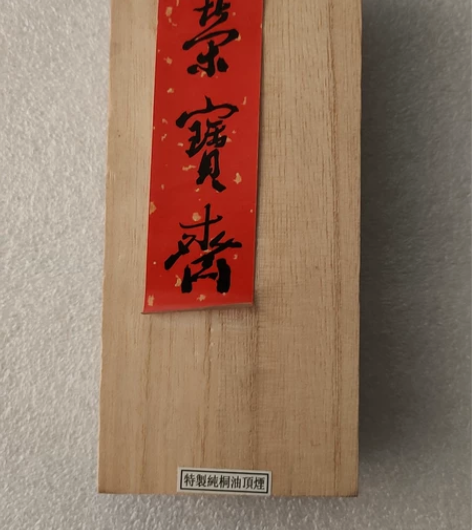 榮寶齋
特製純桐油頂煙